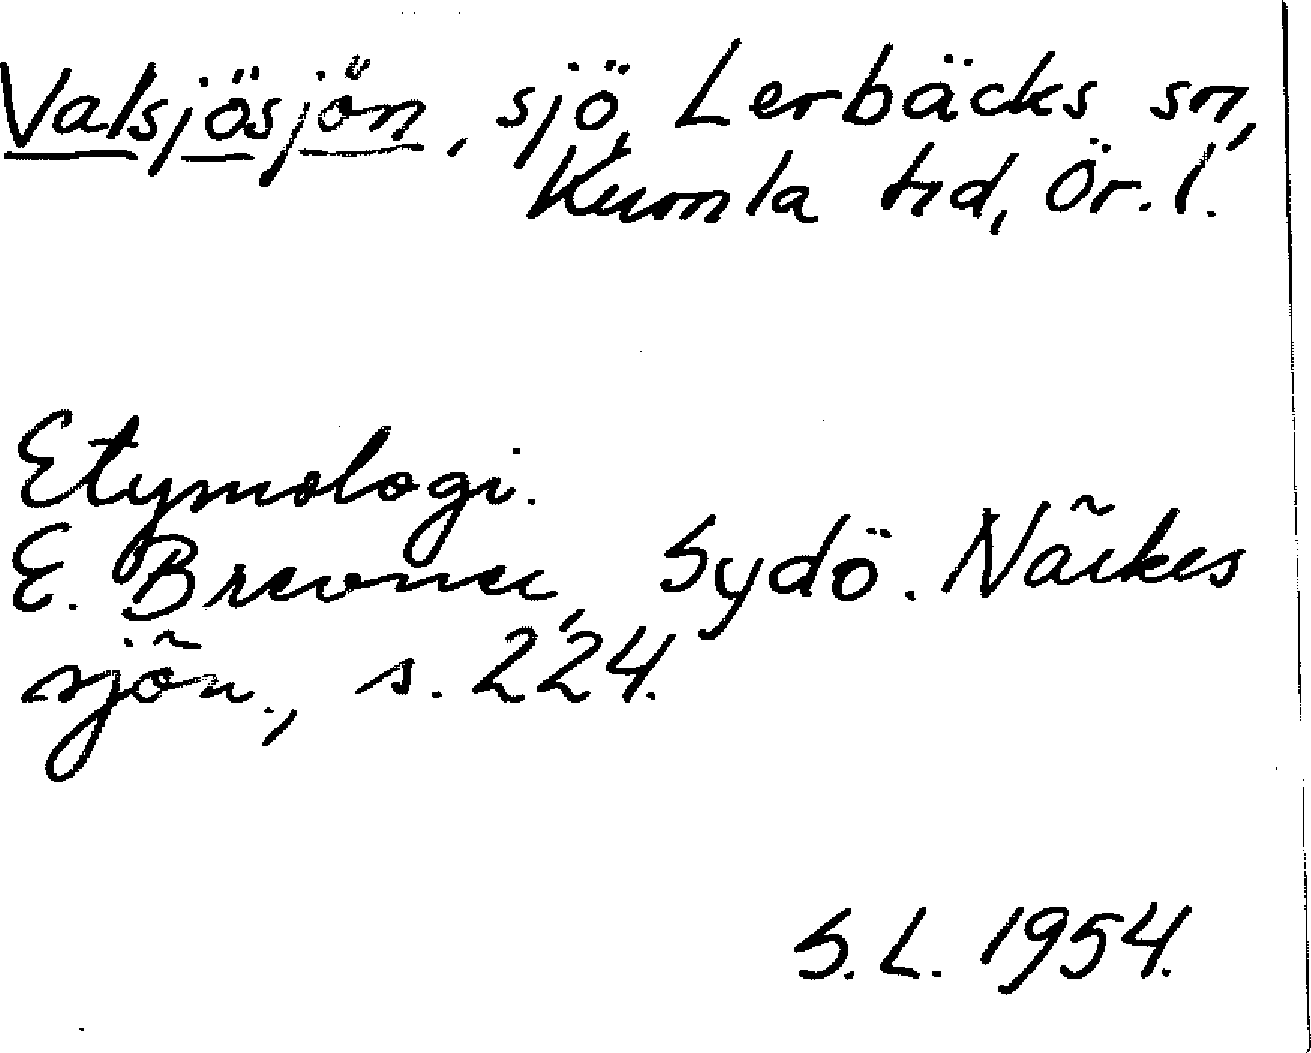 Valsjösjön, sjö, Lerbäcks sn,
Kumla hd, Ör. l.
Etymologi.
E. Brevner, Sydö. Närkes
sjön., s. 224.
S. L. 1954.